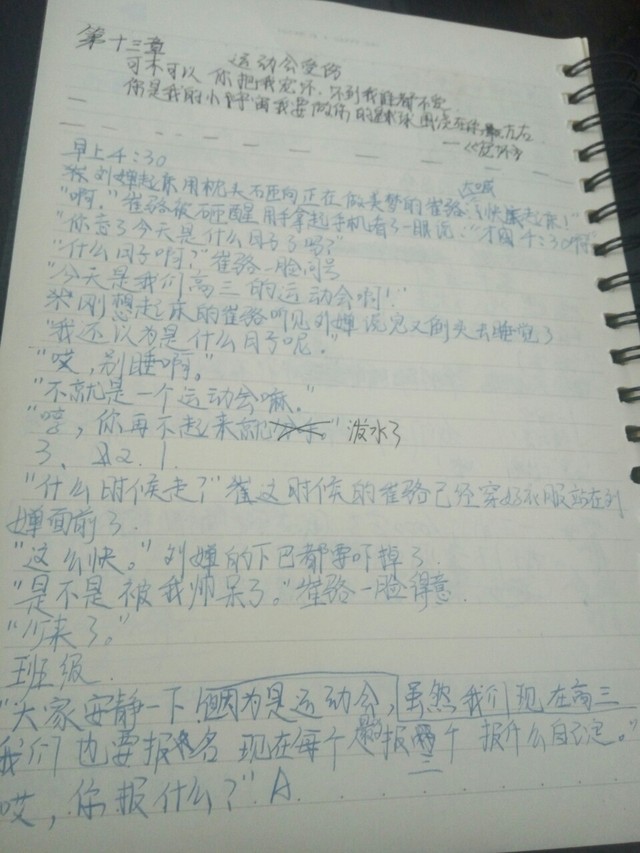 第十三章
运动会受伤
可不可以 你把我宠坏. 坏到我谁都不爱
你是我的小宇宙我要做你的 球围绕在你 左右
—《宠坏》
早上4:30
刘婵起床用枕头砸向正在做美梦的崔骆大喊 "快 起床!"
"啊."崔骆被砸醒用手拿起手机看了一眼说:"才 4:30啊"
"你忘了今天是什么日子了吗?"
"什么日子啊?"崔骆一脸问号
"今天是我们高三的运动会啊!"
刚想起床的崔骆听见刘婵说完又倒头去睡觉了
"我还以为是什么日子呢."
"哎,别睡啊."
"不就是一个运动会嘛."
",你再不起来就 "泼水了
3、2.1.
"什么时候走?"这时候的崔骆已经穿好衣服站在刘
婵面前了.
"这么快."刘婵的下巴都要吓掉了.
"是不是被我帅呆了."崔骆一脸得意.
"少来了."
班级.
"大家安静一下!因为是运动会,虽然我们现在高三
我们也要报名 现在每个 报三个 报什么自己定."
哎,你报什么?"A